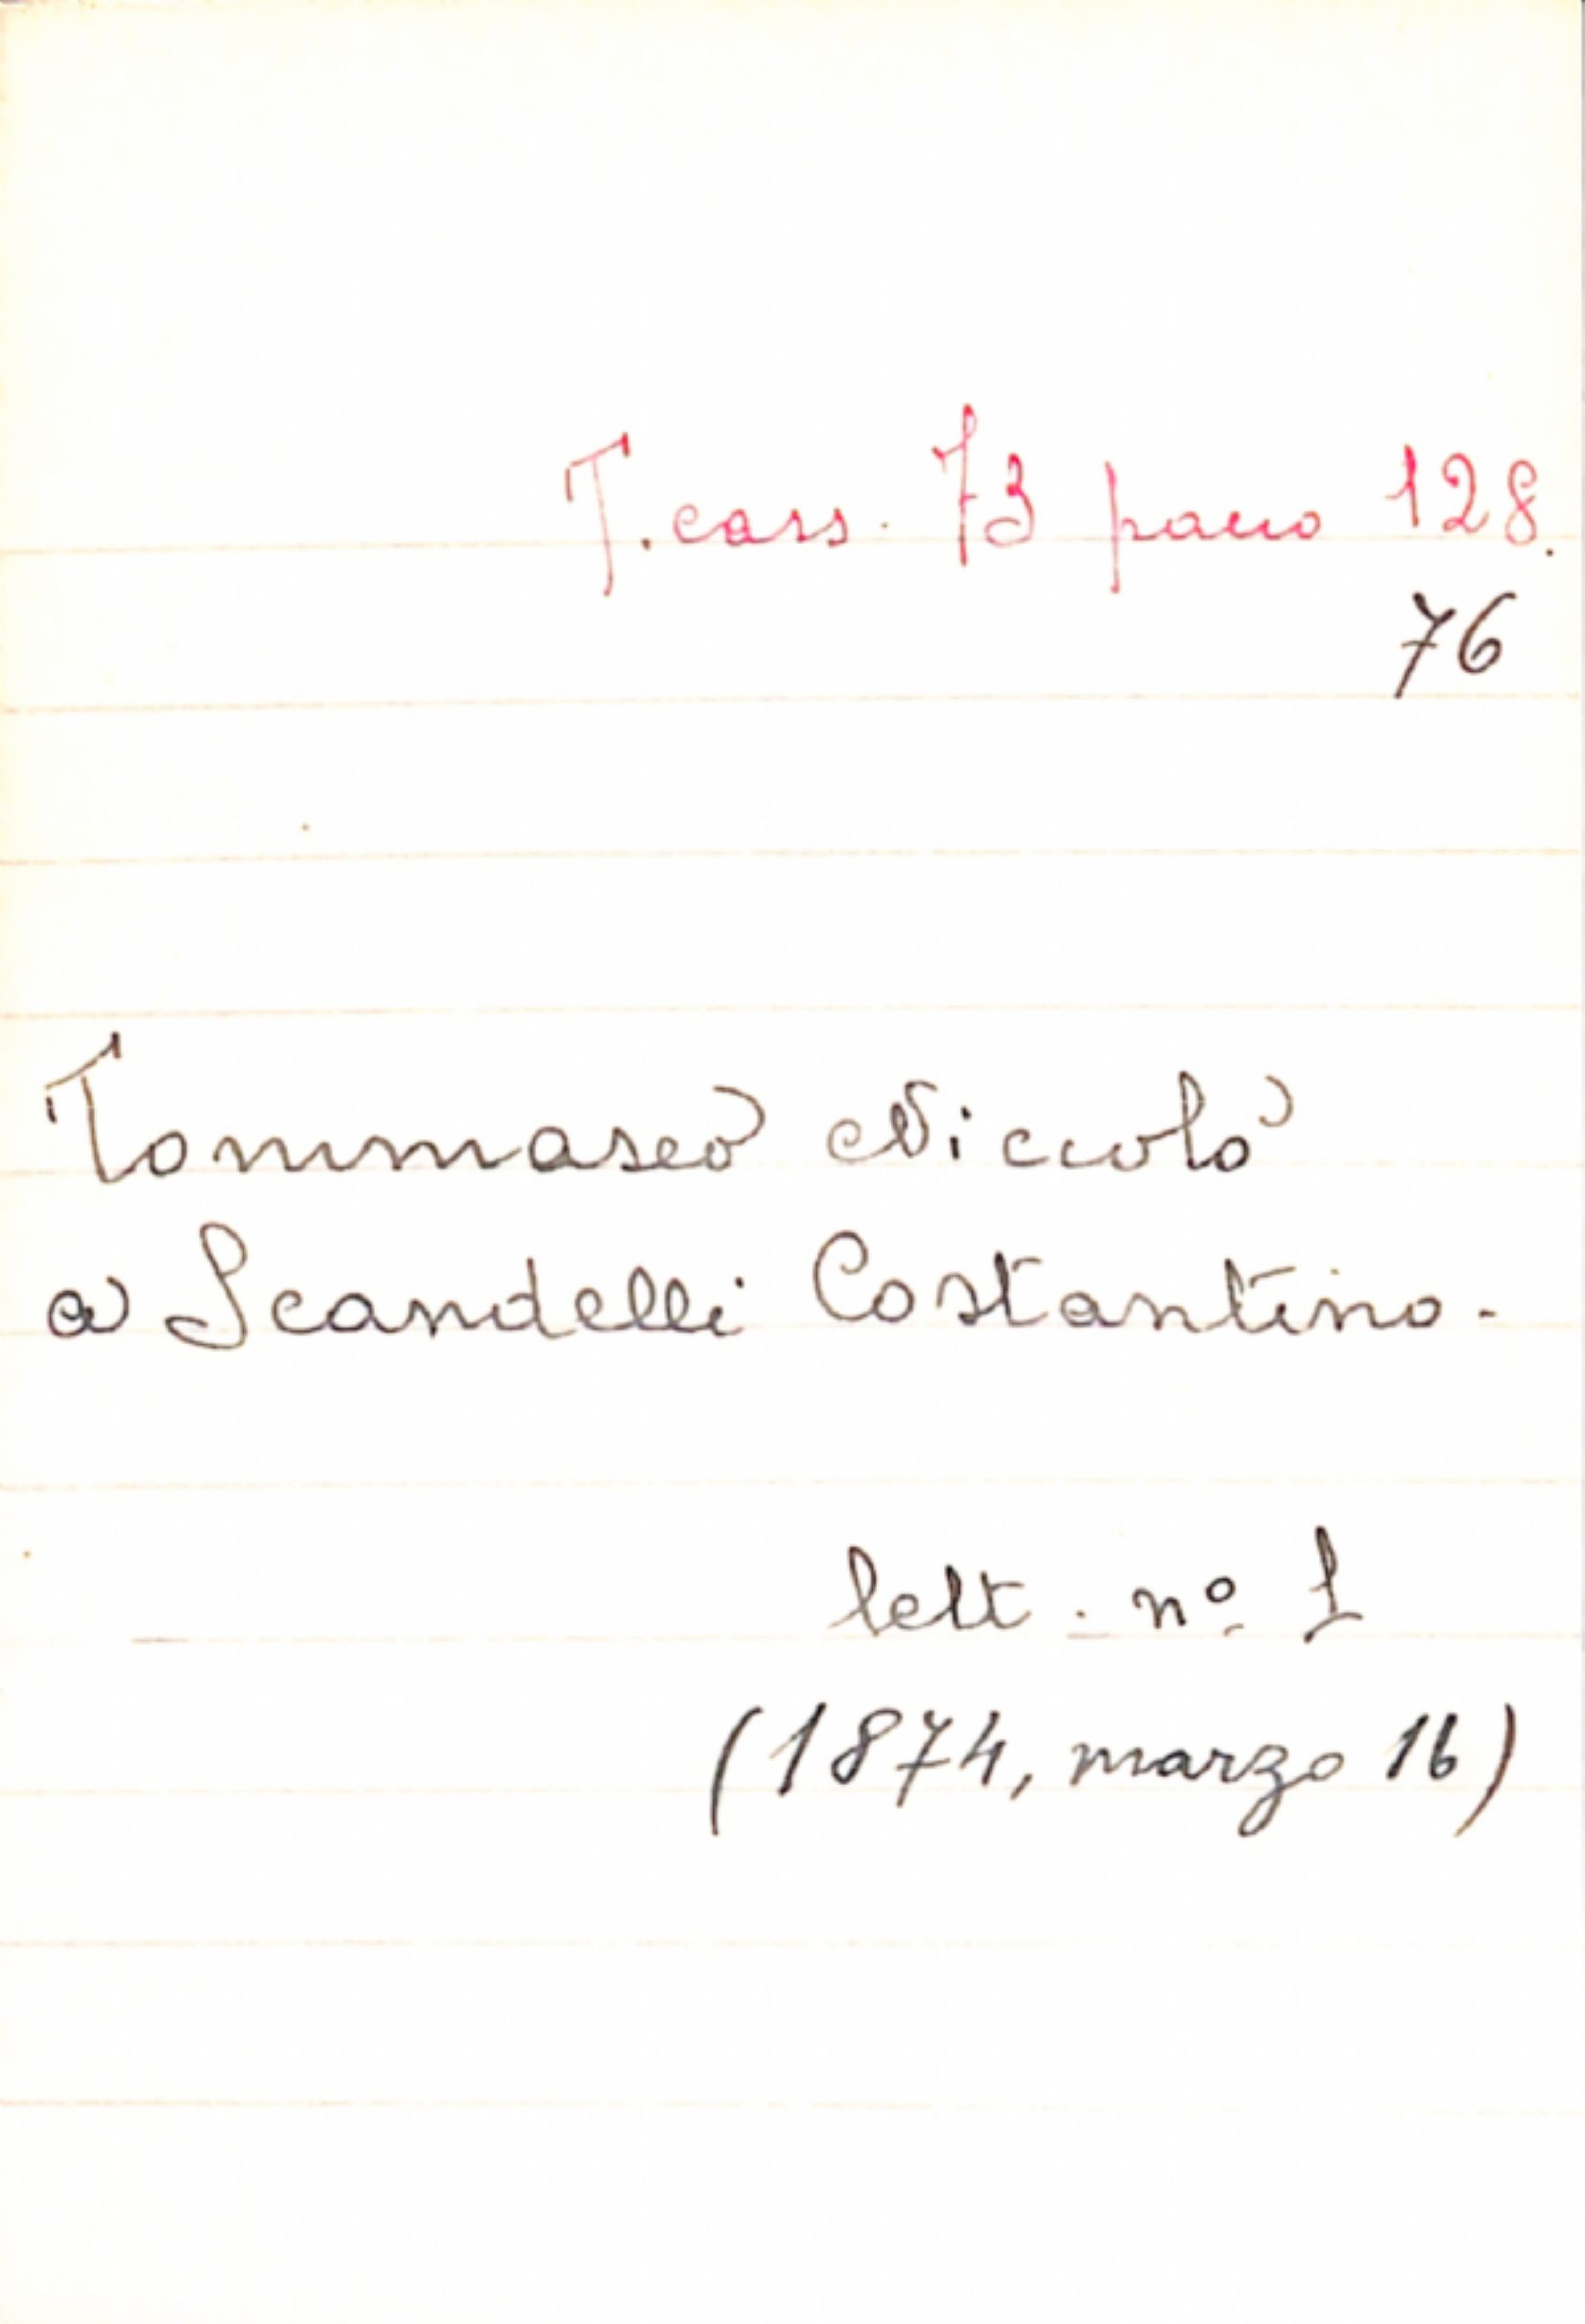 T. cass. 73 pacco 128.
76
Tommaseo Niccolò
a Scandelli Costantino.
lett. nº 1
(1874, marzo 16)